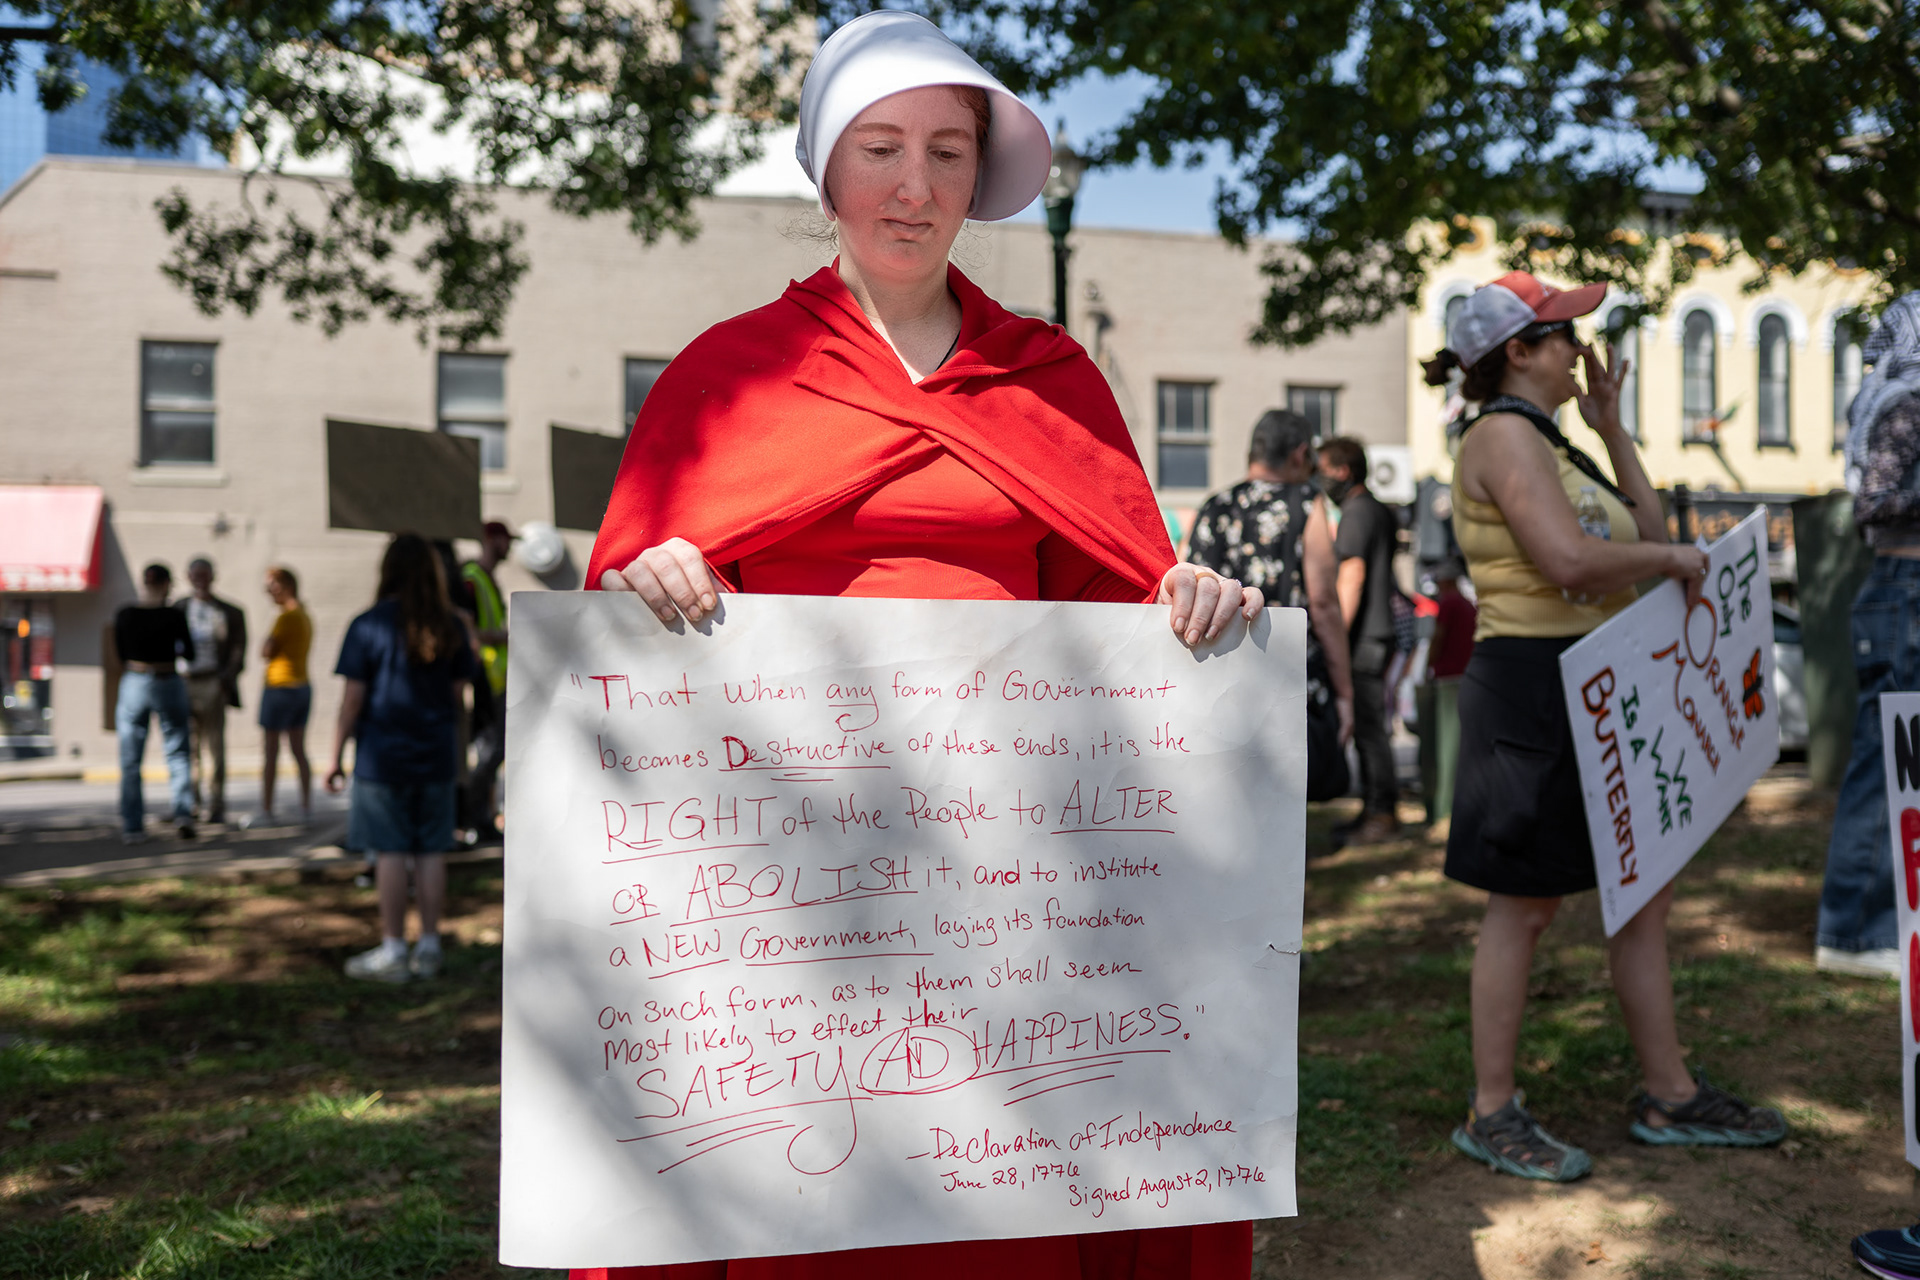 "That when any form of Government
becomes Destructive of these ends, it is the
RIGHT of the People to ALTER
OR ABOLISH it, and to institute
a NEW Government, laying its foundation
on such form, as to them shall seem
most likely to effect their
SAFETY AND HAPPINESS."
—Declaration of Independence
June 28, 1776
Signed August 2, 1776
The
Only
ORANGE
MONARCH
WE
WANT
Is A
BUTTERFLY